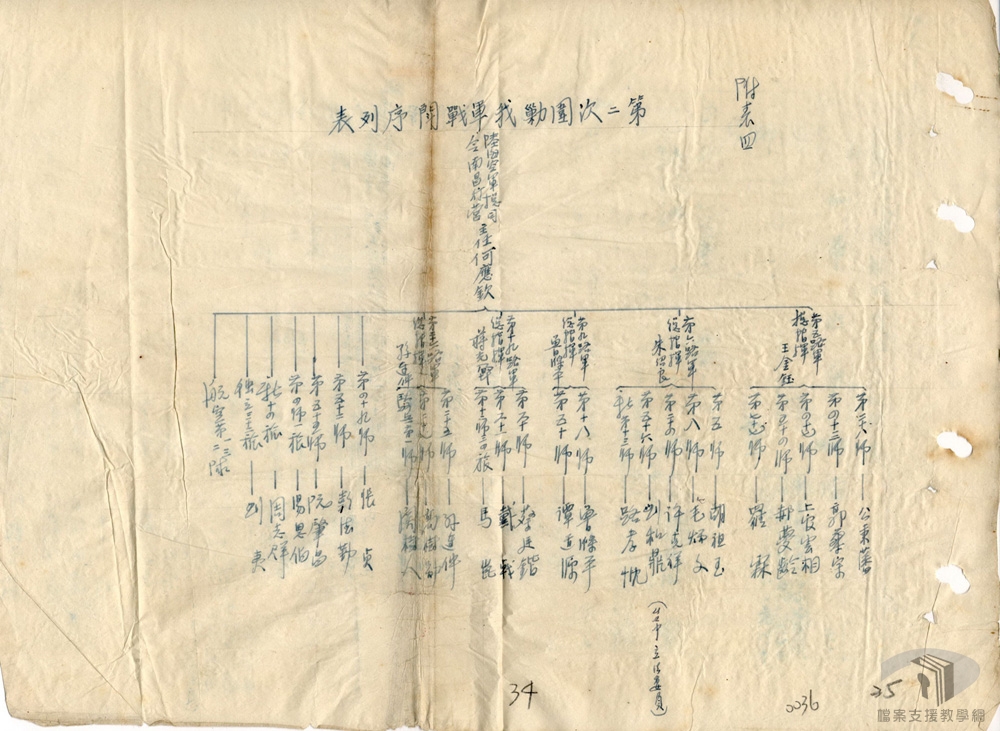 附表四
第二次圍勦我軍戰鬥序列表
陸海空軍總司
令南昌行營主任何應欽
第五路軍
總指揮
王金鈺
第二十八師 公秉藩
第四十三師 郭華宗
第四十七師 上官雲相
第五十四師 郝夢齡
師 羅霖
第六路軍
總指揮
朱紹良
第五師 胡祖玉
第八師 毛炳文
第二十四師 許克祥
第五十六師 刘和鼎
新十三師 路孝忱
(台中立法委員)
第九路軍
總指揮
魯滌平
第十八師 魯滌平
第五十師 譚道源
第十九路軍
總指揮
蔣光鼐
第六十師 蔡廷鍇
第六十一師 戴戟
第十二師三四旅 馬崑
第二十六路軍
總指揮
孫連仲
第二十五師 孫連仲
第二十七師 高樹勛
騎兵第一師 関樹人
第四十九師 張貞
第五十二師 韓德勤
第五十五師 阮肇昌
第四師一旅 湯恩伯
新十四旅 周志群
独三十二旅 刘夷
航空第一二三隊
34
0036
25
檔案支援教學網